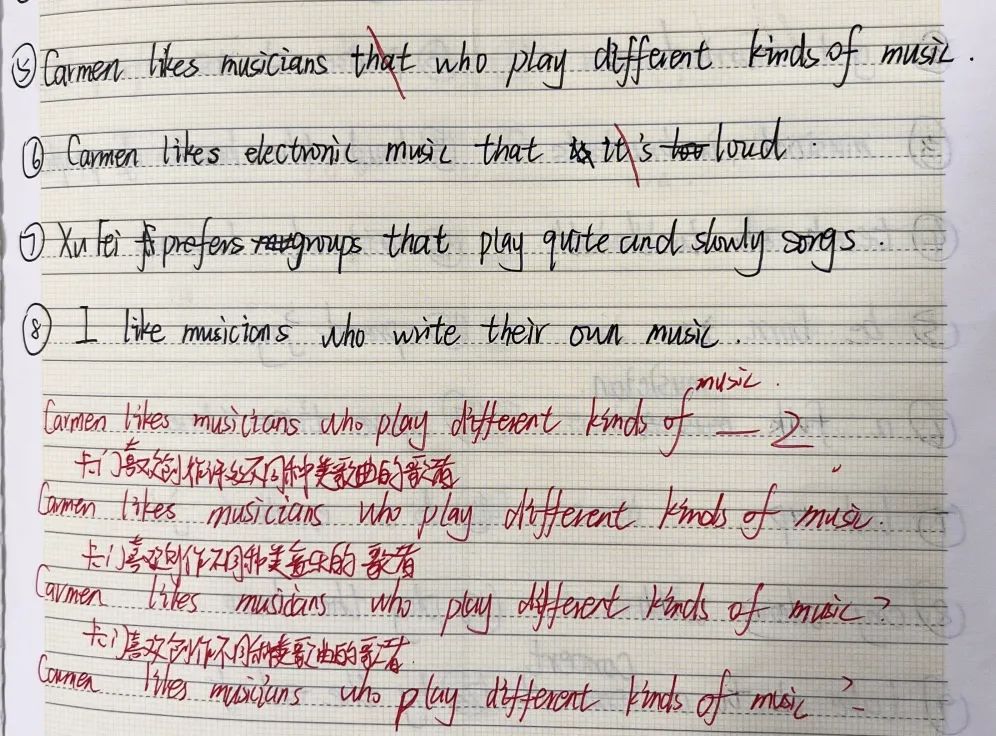 ⑤ Carmen likes musicians that who play different kinds of music.
⑥ Carmen likes electronic music that it's too loud.
⑦ Xu Fei prefers groups that play quite and slowly songs.
⑧ I like musicians who write their own music.
Carmen likes musicians who play different kinds of music. — 2
卡门喜欢创作许多不同种类歌曲的歌者
Carmen likes musicians who play different kinds of music.
卡门喜欢创作不同种类音乐的歌者
Carmen likes musicians who play different kinds of music?
卡门喜欢创作不同种类歌曲的歌者.
Carmen likes musicians who play different kinds of music?